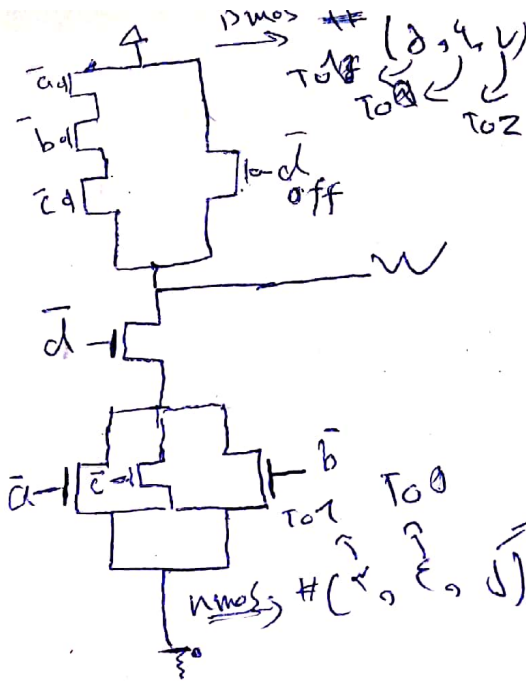 pmos # (۵, ۶, ۷)
To1
To0
ToZ
a̅
b̅
c̅
d̅
off
W
d̅
a̅
c̅
b̅
To1 To0
nmos #(۳, ۴, ۵)